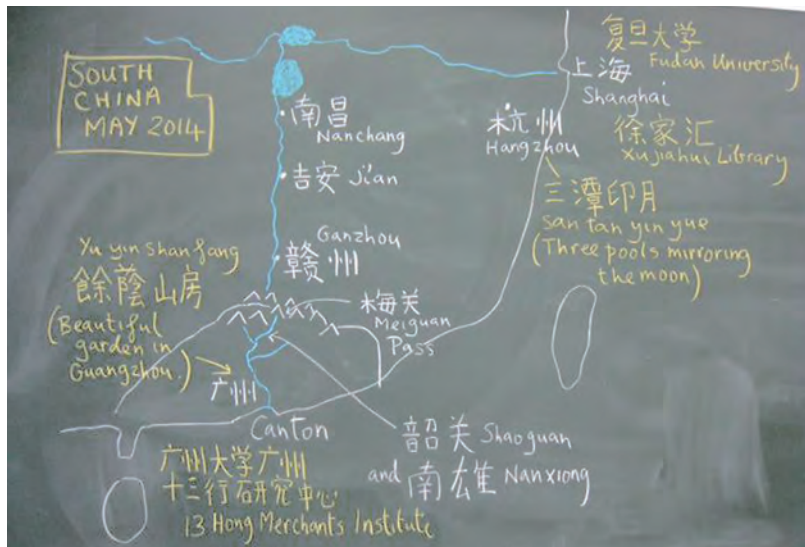 SOUTH
CHINA
MAY 2014
复旦大学
Fudan University
上海
Shanghai
徐家汇
Xujiahui Library
南昌
Nanchang
杭州
Hangzhou
吉安 Ji'an
三潭印月
san tan yin yue
(Three pools mirroring
the moon)
Ganzhou
赣州
Yu yin shan fang
餘蔭山房
(Beautiful
garden in
Guangzhou.)
梅关
Meiguan
Pass
广州
Canton
韶关 Shaoguan
and 南雄 Nanxiong
广州大学广州
十三行研究中心
13 Hong Merchants Institute